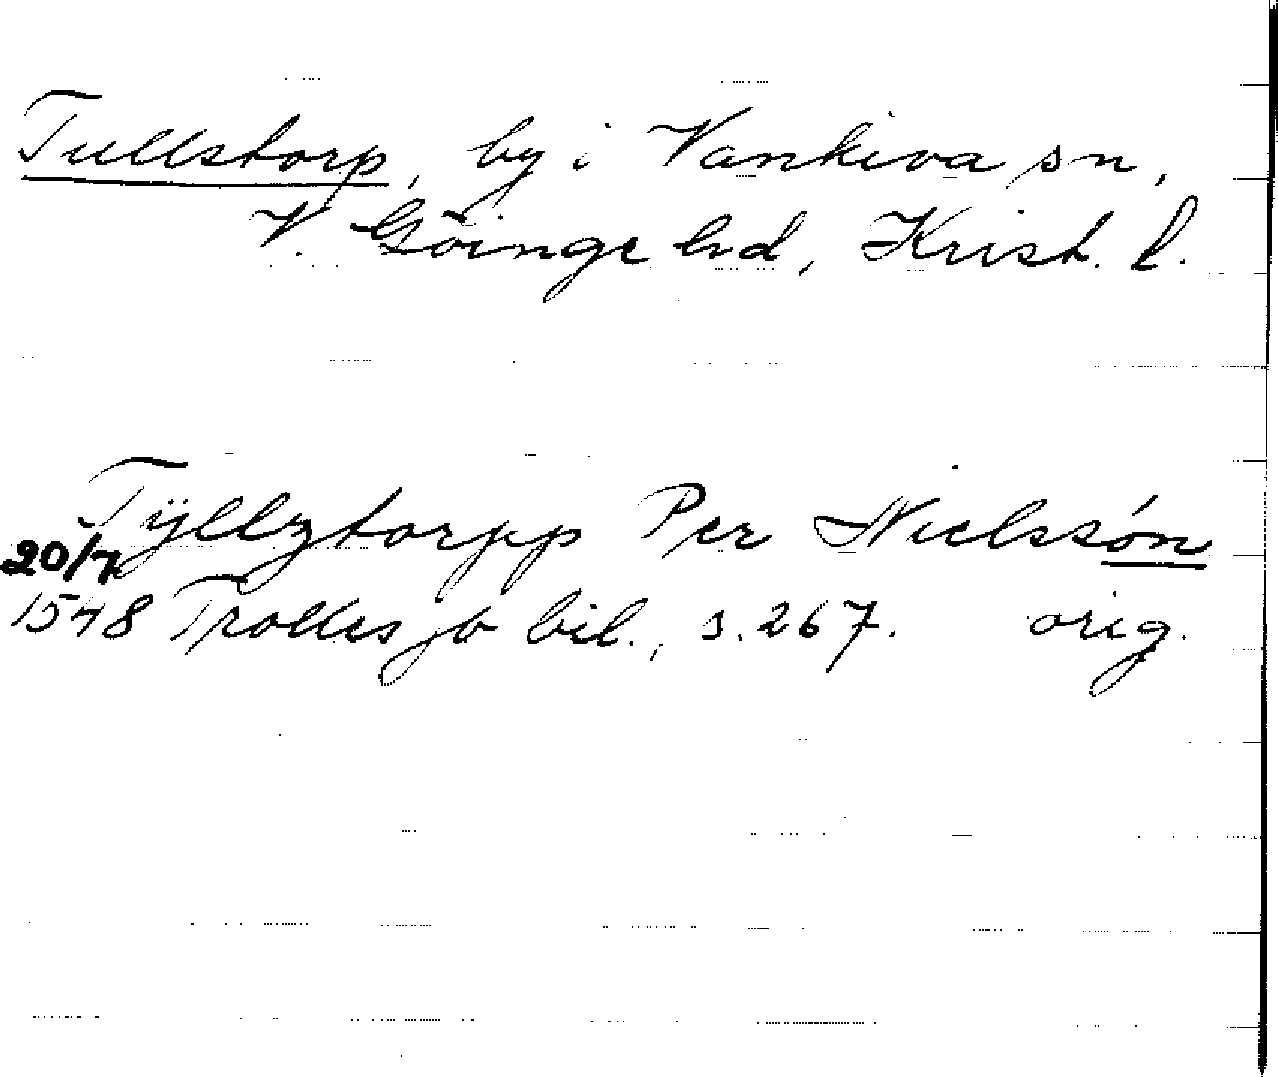 Tullstorp, by i Vankiva sn,
V. Göinge hd, Krist. l.
Tÿllztorpp Per Nielssøn
20/7
1548 Trolles jb bil., s. 267. orig.